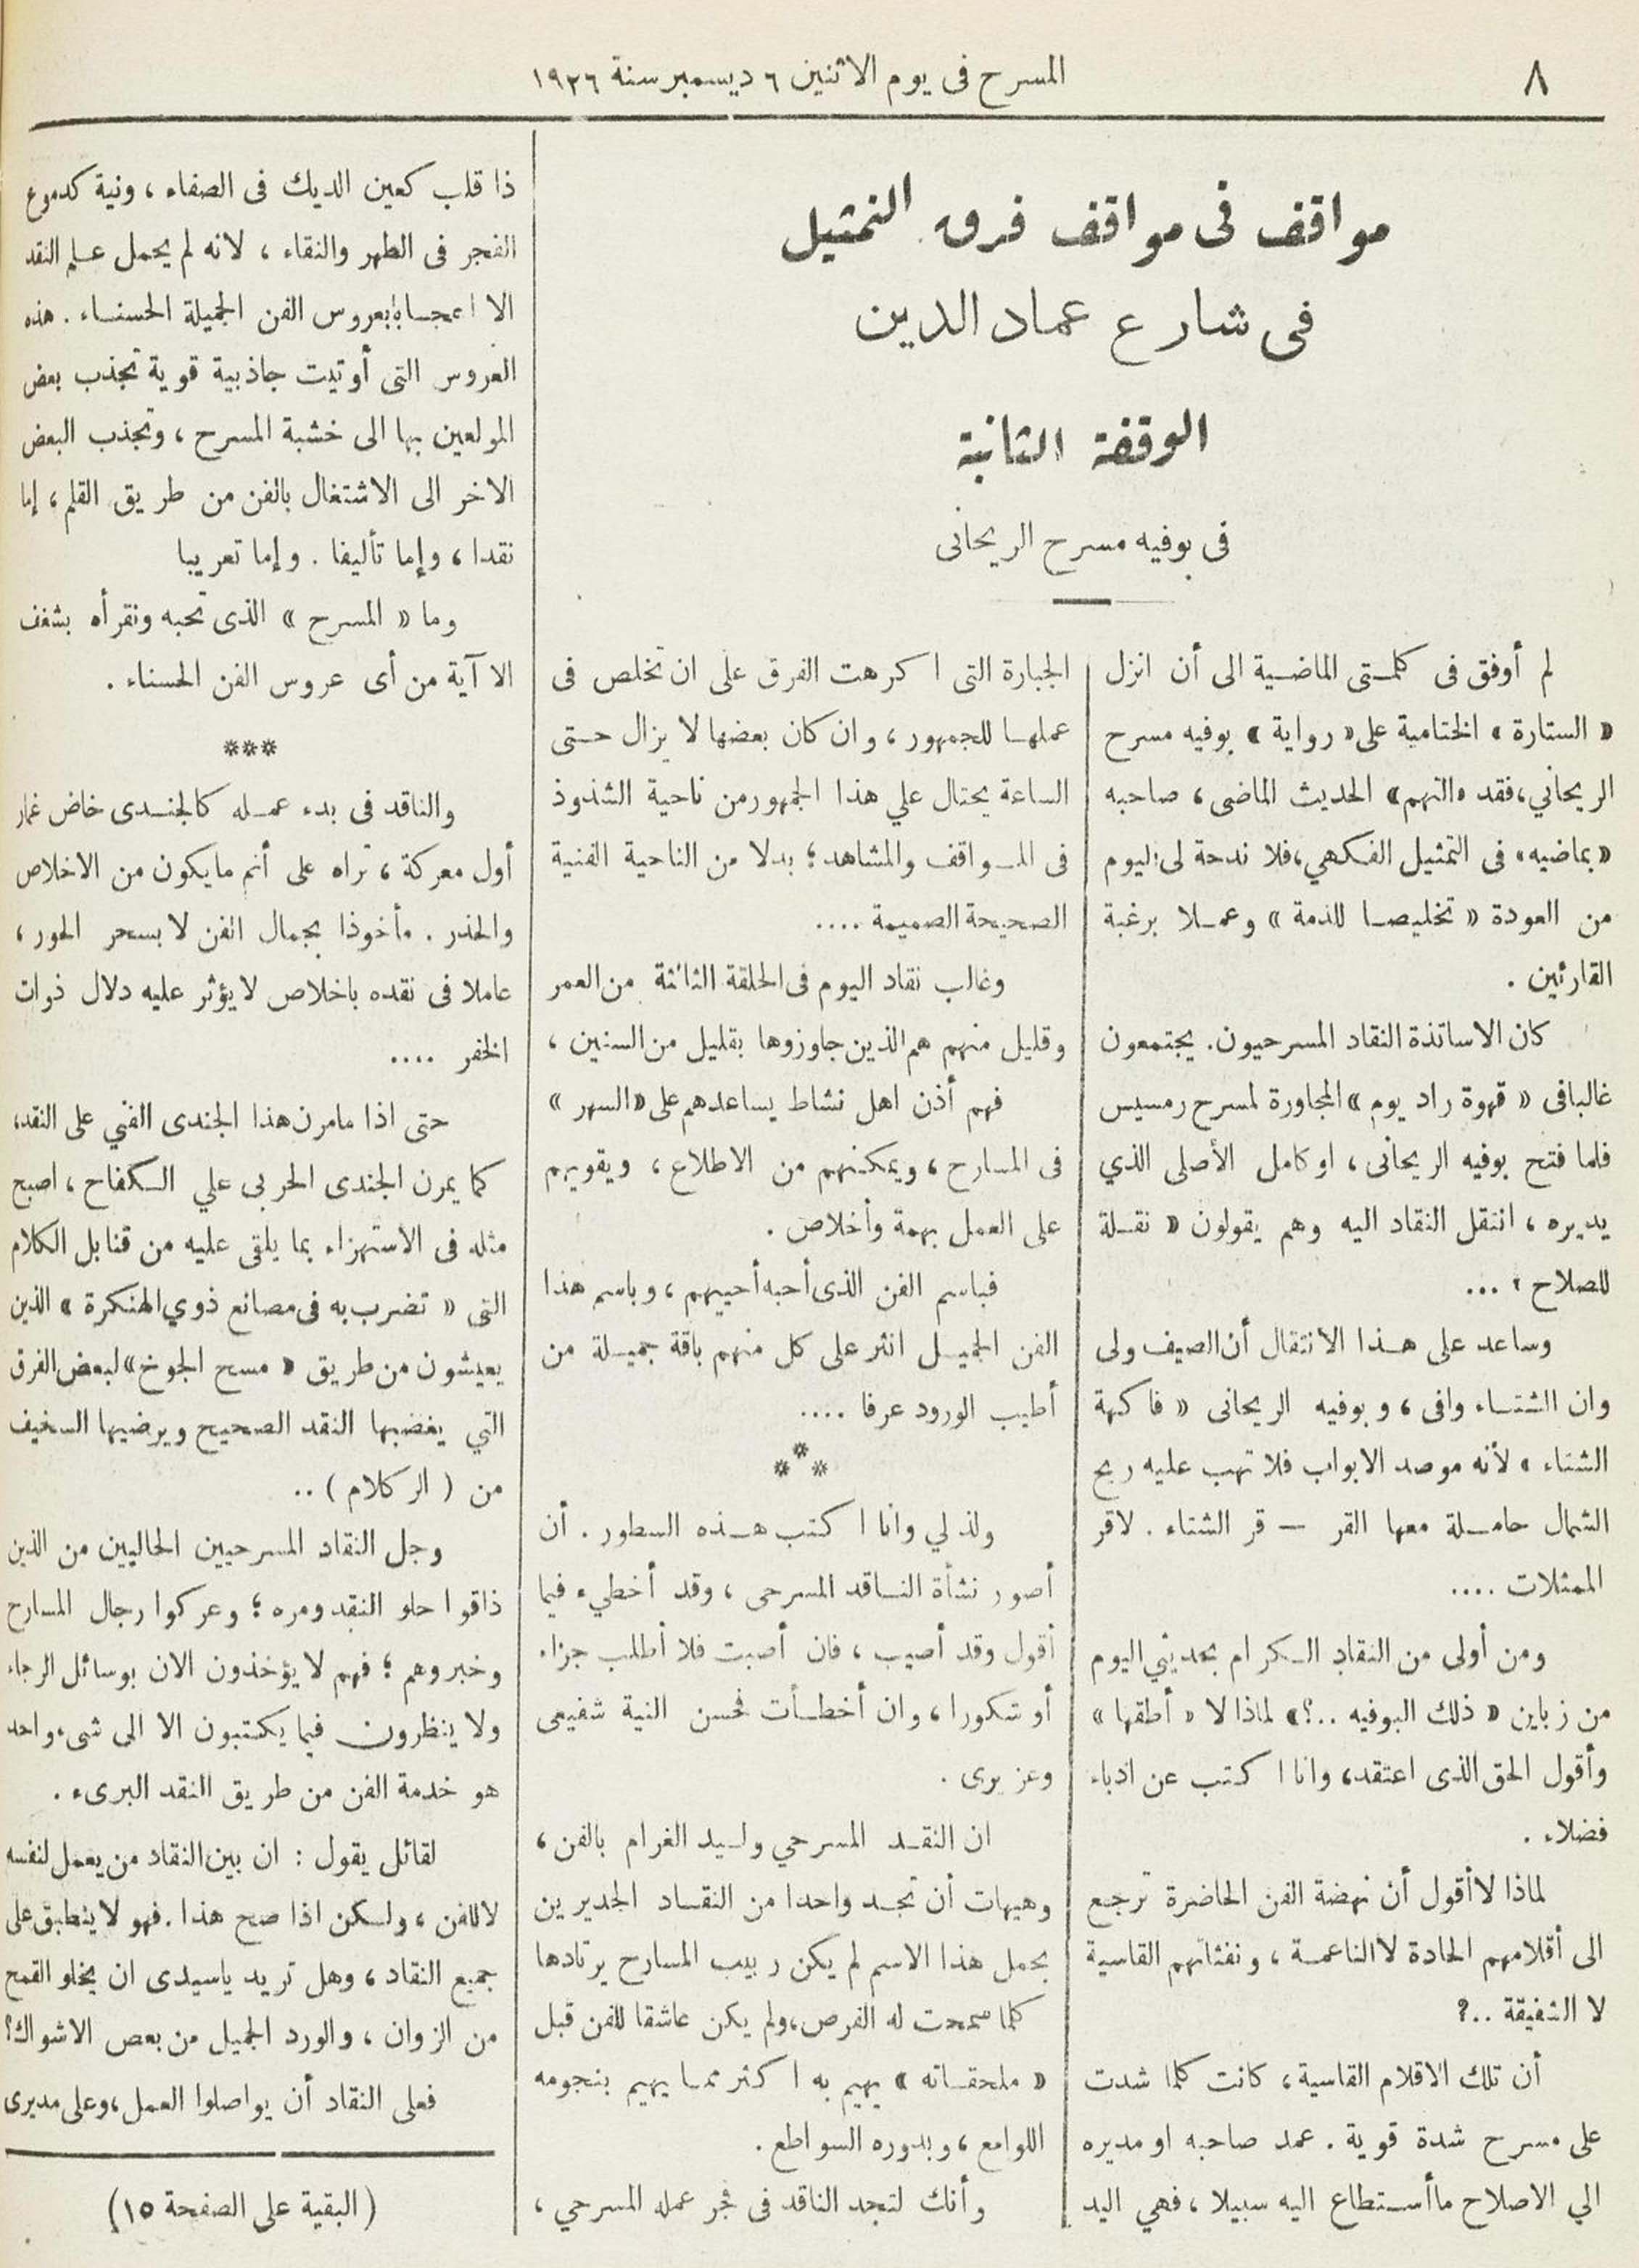 ٨
المسرح فى يوم الاثنين ٦ ديسمبر سنة ١٩٢٦
مواقف فى مواقف فرق التمثيل
فى شارع عماد الدين
الوقفة الثانية
فى بوفيه مسرح الريحانى
لم أوفق فى كلمتى الماضية الى أن انزل
« الستارة » الختامية على « رواية » بوفيه مسرح
الريحاني، فقد «التهم» الحديث الماضى، صاحبه
« بماضيه » فى التمثيل الفكهي، فلا ندحة لى اليوم
من العودة « تخليصا للذمة » وعملا برغبة
القارئين .
كان الاساتذة النقاد المسرحيون. يجتمعون
غالبا فى « قهوة راد يوم » المجاورة لمسرح رمسيس
فلما فتح بوفيه الريحانى، او كامل الأصلى الذي
يديره ، انتقل النقاد اليه وهم يقولون « نقلة
للصلاح » ...
وساعد على هذا الانتقال أن الصيف ولى
وان الشتاء وافى ، وبوفيه الريحانى « فاكهة
الشتاء » لأنه موصد الابواب فلا تهب عليه ريح
الشمال حاملة معها القر — قر الشتاء . لاقر
الممثلات ....
ومن أولى من النقاد الكرام بحديثي اليوم
من زباين « ذلك البوفيه ..؟» لماذا لا « أطقها »
وأقول الحق الذى اعتقد، وانا اكتب عن ادباء
فضلاء .
لماذا لا أقول أن نهضة الفن الحاضرة ترجع
الى أقلامهم الحادة لا الناعمة ، ونفثاتهم القاسية
لا الشفيقة ..؟
أن تلك الاقلام القاسية ، كانت كلما شدت
على مسرح شدة قوية . عمد صاحبه او مديره
الي الاصلاح ما أستطاع اليه سبيلا ، فهي اليد
الجبارة التى اكرهت الفرق على ان تخلص فى
عملها للجمهور ، وان كان بعضها لا يزال حتى
الساعة يحتال علي هذا الجمهور من ناحية الشذوذ
فى المواقف والمشاهد ؛ بدلا من الناحية الفنية
الصحيحة الصميمة ....
وغالب نقاد اليوم فى الحلقة الثالثة من العمر
وقليل منهم هم الذين جاوزوها بقليل من السنين ،
فهم أذن اهل نشاط يساعدهم على « السهر »
فى المسارح ، ويمكنهم من الاطلاع ، ويقويهم
على العمل بهمة وأخلاص .
فباسم الفن الذى أحبه أحييهم ، وباسم هذا
الفن الجميل انثر على كل منهم باقة جميلة من
أطيب الورود عرفا ....
***
ولذ لي وانا اكتب هذه السطور . أن
أصور نشأة الناقد المسرحى ، وقد أخطيء فيما
أقول وقد أصيب ، فان أصبت فلا أطلب جزاء
أو شكورا ، وان أخطأت فحسن النية شفيعى
وعزيرى .
ان النقد المسرحي وليد الغرام بالفن ،
وهيهات أن تجد واحدا من النقاد الجديرين
بحمل هذا الاسم لم يكن ربيب المسارح يرتادها
كلما سمحت له الفرص، ولم يكن عاشقا للفن قبل
« ملحقاته » يهيم به اكثر مما يهيم بنجومه
اللوامع ، وبدوره السواطع .
وأنك لتجد الناقد فى فجر عمله المسرحي ،
ذا قلب كعين الديك فى الصفاء ، ونية كدموع
الفجر فى الطهر والنقاء ، لانه لم يحمل علم النقد
الا اعجابا بعروس الفن الجميلة الحسناء . هذه
العروس التى أوتيت جاذبية قوية تجذب بعض
المولعين بها الى خشبة المسرح ، وتجذب البعض
الاخر الى الاشتغال بالفن من طريق القلم ، إما
نقدا ، وإما تأليفا . وإما تعريبا
وما « المسرح » الذى نحبه ونقرأه بشغف
الا آية من أى عروس الفن الحسناء .
***
والناقد فى بدء عمله كالجندى خاض غمار
أول معركة ، تراه على أتم مايكون من الاخلاص
والحذر . مأخوذا بجمال الفن لا بسحر الحور ،
عاملا فى نقده باخلاص لا يؤثر عليه دلال ذوات
الخفر ....
حتى اذا مامرن هذا الجندى الفني على النقد،
كما يمرن الجندى الحربى علي الكفاح ، اصبح
مثله فى الاستهزاء بما يلقى عليه من قنابل الكلام
التى « تضرب به فى مصانع ذوي الهنكرة » الذين
يعيشون من طريق « مسح الجوخ » لبعض الفرق
التي يغضبها النقد الصحيح ويرضيها السخيف
من ( الركلام ) ..
وجل النقاد المسرحيين الحاليين من الذين
ذاقوا حلو النقد ومره ؛ وعركوا رجال المسارح
وخبروهم ؛ فهم لا يؤخذون الان بوسائل الرجاء
ولا ينظرون فيما يكتبون الا الى شىء واحد
هو خدمة الفن من طريق النقد البرىء .
لقائل يقول : ان بين النقاد من يعمل لنفسه
لا للفن ، ولكن اذا صح هذا . فهو لا ينطبق على
جميع النقاد ، وهل تريد ياسيدى ان يخلو القمح
من الزوان ، والورد الجميل من بعض الاشواك؟
فعلى النقاد أن يواصلوا العمل، وعلى مديرى
(البقية على الصفحة ١٥)